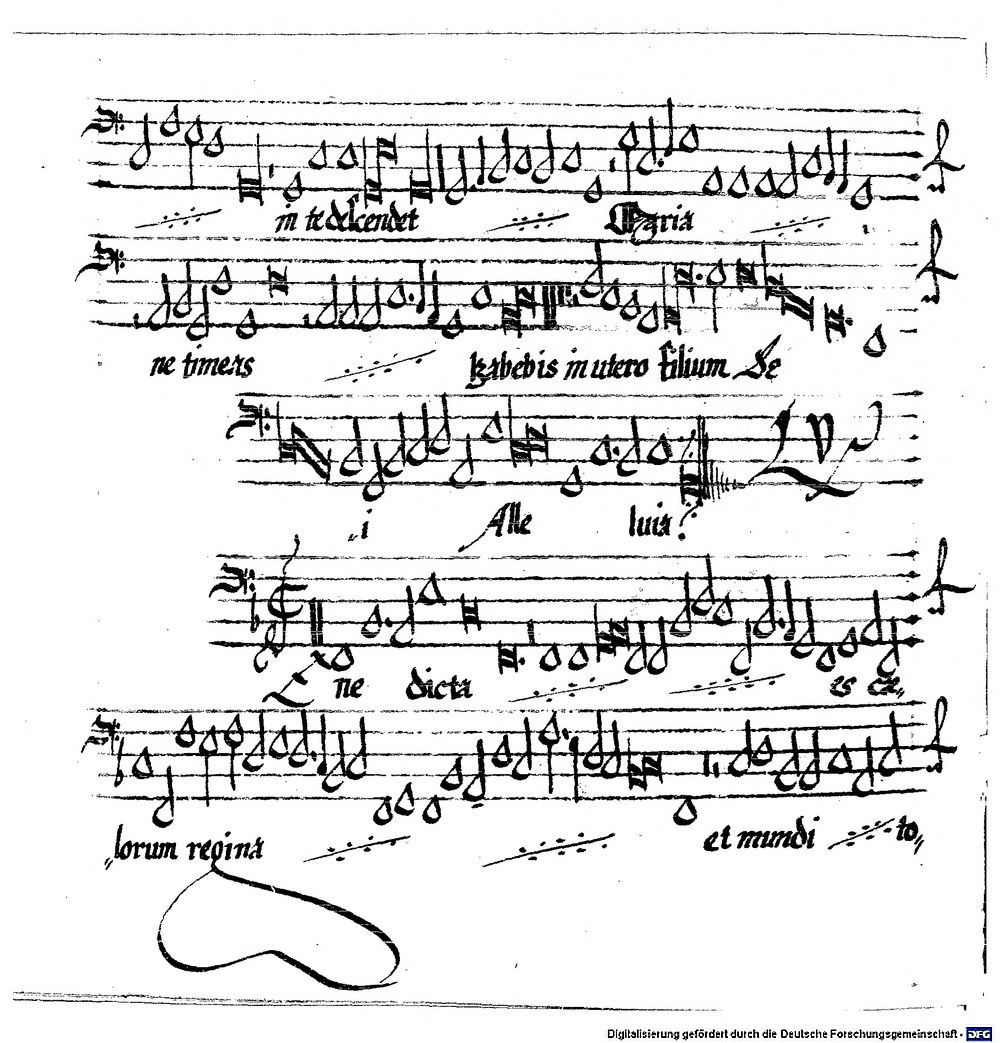 in te descendet Maria
ne timeas habebis in utero filium De
i Alle luia
ne dicta es cæ„
„lorum regina et mundi to„
Digitalisierung gefördert durch die Deutsche Forschungsgemeinschaft - DFG